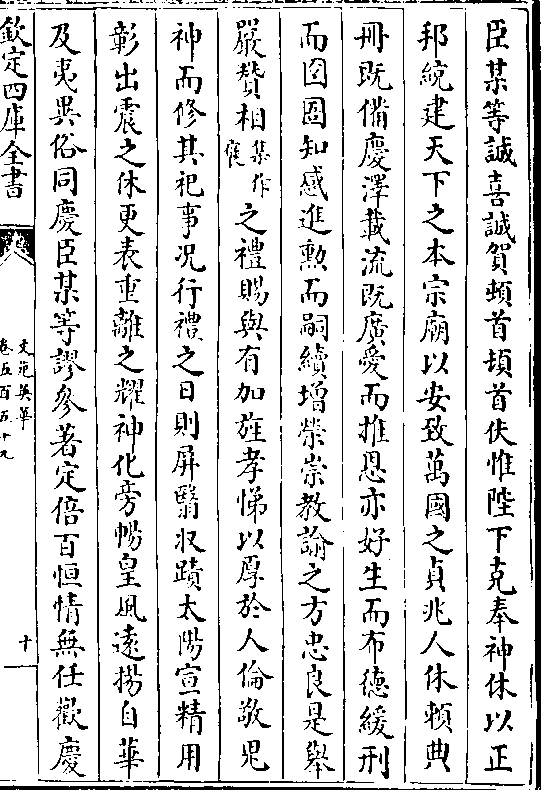 臣某等誠喜誠賀頓首頓首伏惟陛下克奉神休以正
邦統建天下之本宗廟以安致萬國之貞兆人休賴典
冊既備慶澤載流既廣愛而推恩亦好生而布德緩刑
而囹圄知感進勲而嗣續增榮崇教諭之方忠良是舉
嚴贊相集作儐之禮賜與有加旌孝悌以厚於人倫敬鬼
神而修其祀事况行禮之日則屏翳収蹟太陽宣精用
彰出震之休更表重離之耀神化旁暢皇風遠揚自華
及夷異俗同慶臣某等謬參著定倍百恒情無任歡慶
欽定四庫全書
文苑英華
卷五百五十九
十